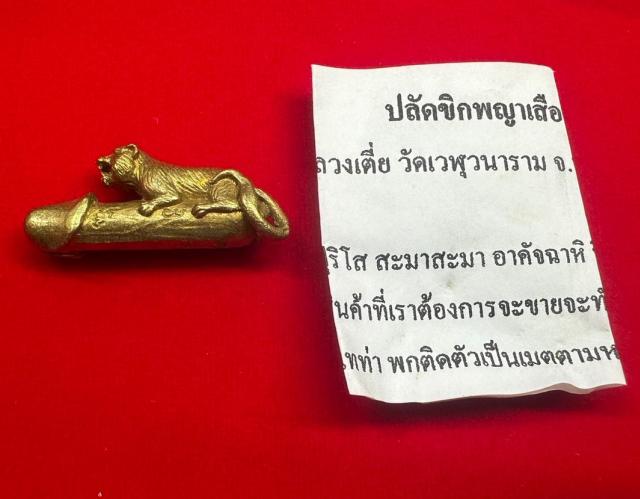 ปลัดขิกพญาเสือ
ลวงเตี่ย วัดเวฬุวนาราม จ.
ุริโส สะมาสะมา อาคัจฉาหิ
นค้าที่เราต้องการจะขายจะทำ
เทท่า พกติดตัวเป็นเมตตามห